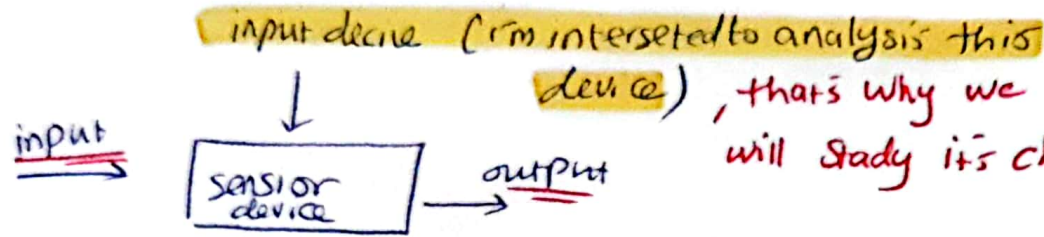 input decive (i'm interseted to analysis this
device) , that's why we
will stady it's
input
sensior
device
output